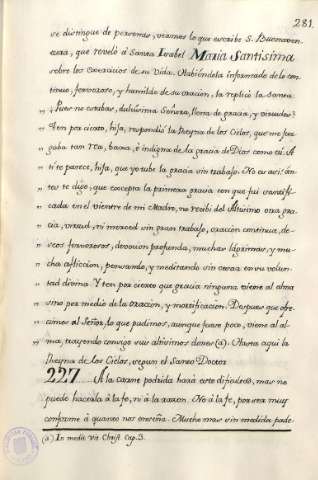 281.
se distingue de personas, veamos lo que escribe S. Buenaven-
tura, que reveló à Santa Isabel Maria Santisima
sobre los exercicios de su Vida. Habiendola informado de lo con-
tinuo, fervoroso, y humilde de su oracion, la replicò la Santa.
¿Pues no estabas, dulcisima Señora, llena de gracia, y virtudes?
„ Ten por cierto, hija, respondiò la Reyna de los Cielos, que me juz-
„ gaba tan rea, baxa, è indigna de la gracia de Dios como tú. A
„ ti te parece, hija, que yo tube la gracia sin trabajo. No es asi: an-
„ tes te digo, que excepta la primera gracia con que fui santifi-
„ cada en el vientre de mi Madre, no recibi del Altisimo otra gra-
„ cia, virtud, ni merced sin gran trabajo, oracion continua, de-
„ seos fervorosos, devocion profunda, muchas lagrimas, y mu-
„ cha afliccion, pensando, y meditando sin cesar en su volun-
„ tad divina. Y ten por cierto que gracia ninguna viene al alma
„ sino por medio de la oracion, y mortificacion. Despues que ofre-
„ cemos al Señor lo que pudimos, aunque fuere poco, viene al al-
„ ma, trayendo consigo sus altisimos dones (a). Hasta aqui la
Reyna de los Cielos, segun el Santo Doctor.
227 A la carne podrida harà esto dificil, mas no
puede hacerla à la fe, ni à la razon. No à la fe, por ser muy
conforme à quanto nos enseña. Mucho mas sin medida pade-
(a) In medit. Vit. Christ. Cap. 3.